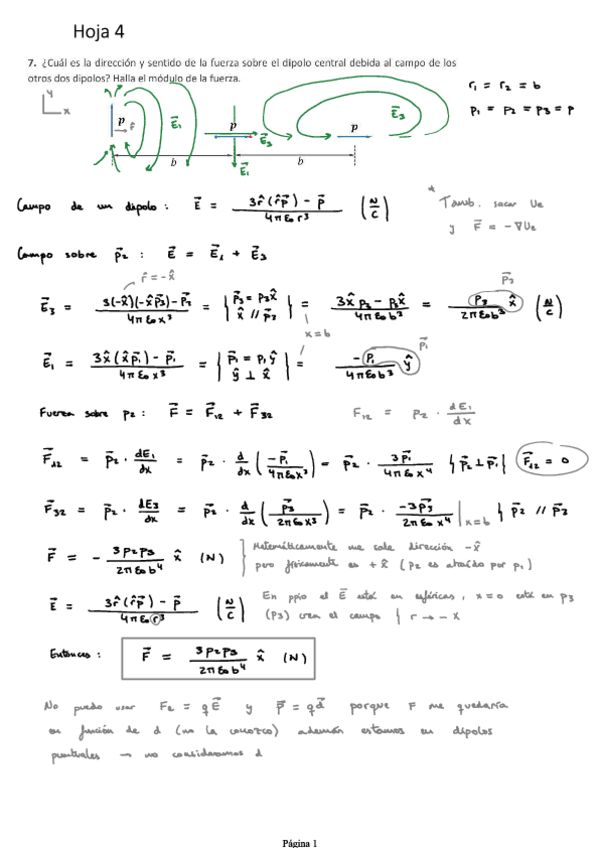 Hoja 4
7. ¿Cuál es la dirección y sentido de la fuerza sobre el dipolo central debida al campo de los
otros dos dipolos? Halla el módulo de la fuerza.
r₁ = r₂ = b
p₁ = p₂ = p₃ = p
y
x
p F E⃗₁ p E⃗₃ p E⃗₃
b E⃗₁ b
Campo de un dipolo : E⃗ = (3r̂(r̂p⃗) - p⃗)/(4πε₀r³) (N/C)
* Tamb. sacar Ue
y F⃗ = -∇Ue
Campo sobre p⃗₂ : E⃗ = E⃗₁ + E⃗₃
r̂ = -x̂
p⃗₃
E⃗₃ = (3(-x̂)(-x̂p⃗₃) - p⃗₃)/(4πε₀x³) = { p⃗₃ = p₃x̂ / x̂ // p⃗₃ } = (3x̂p₃ - p₃x̂)/(4πε₀b³) = p₃/(2πε₀b³) x̂ (N/C)
x = b
E⃗₁ = (3x̂(x̂p⃗₁) - p⃗₁)/(4πε₀x³) = { p⃗₁ = p₁ŷ / ŷ ⊥ x̂ } = -p₁/(4πε₀b³) ŷ
p⃗₁
Fuerza sobre p₂ : F⃗ = F⃗₁₂ + F⃗₃₂ F₁₂ = p₂ · dE₁/dx
F⃗₁₂ = p⃗₂ · dE⃗₁/dx = p⃗₂ · d/dx (-p⃗₁/(4πε₀x³)) = p⃗₂ · 3p⃗₁/(4πε₀x⁴) { p⃗₂ ⊥ p⃗₁ } F⃗₁₂ = 0
F⃗₃₂ = p⃗₂ · dE⃗₃/dx = p⃗₂ · d/dx (p⃗₃/(2πε₀x³)) = p⃗₂ · -3p⃗₃/(2πε₀x⁴) |x=b { p⃗₂ // p⃗₃
F⃗ = - 3p₂p₃/(2πε₀b⁴) x̂ (N) } Matemáticamente me sale dirección -x̂
pero físicamente es +x̂ (p₂ es atraído por p₁)
E⃗ = (3r̂(r̂p⃗) - p⃗)/(4πε₀r³) (N/C) En ppio el E⃗ está en esféricas, x=0 está en p₃
(p₃) crea el campo { r → -x
Entonces : F⃗ = 3p₂p₃/(2πε₀b⁴) x̂ (N)
No puedo usar Fe = qE⃗ y p⃗ = qd⃗ porque F me quedaría
en función de d (no la conozco) además estamos en dipolos
puntuales → no consideramos d
Página 1